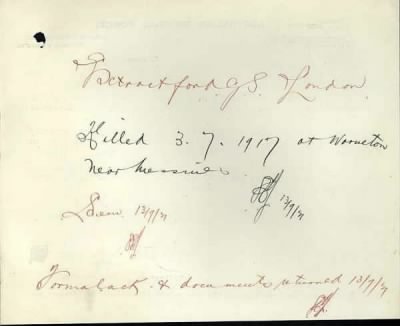 Extract ford. G.S. London
Killed 3.7.1917 at Warneton
Near Messines
13/9/21
Exam 13/9/21
Forms back & documents returned 13/9/21